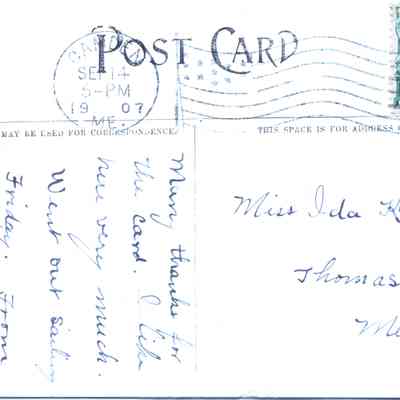 POST CARD
CAMDEN
SEP 14
5-PM
19 07
ME.
MAY BE USED FOR CORRESPONDENCE.
THIS SPACE IS FOR ADDRESS
Many thanks for
the card. I like
here very much.
Went out sailing
Friday. From
Miss Ida K
Thomas
Me